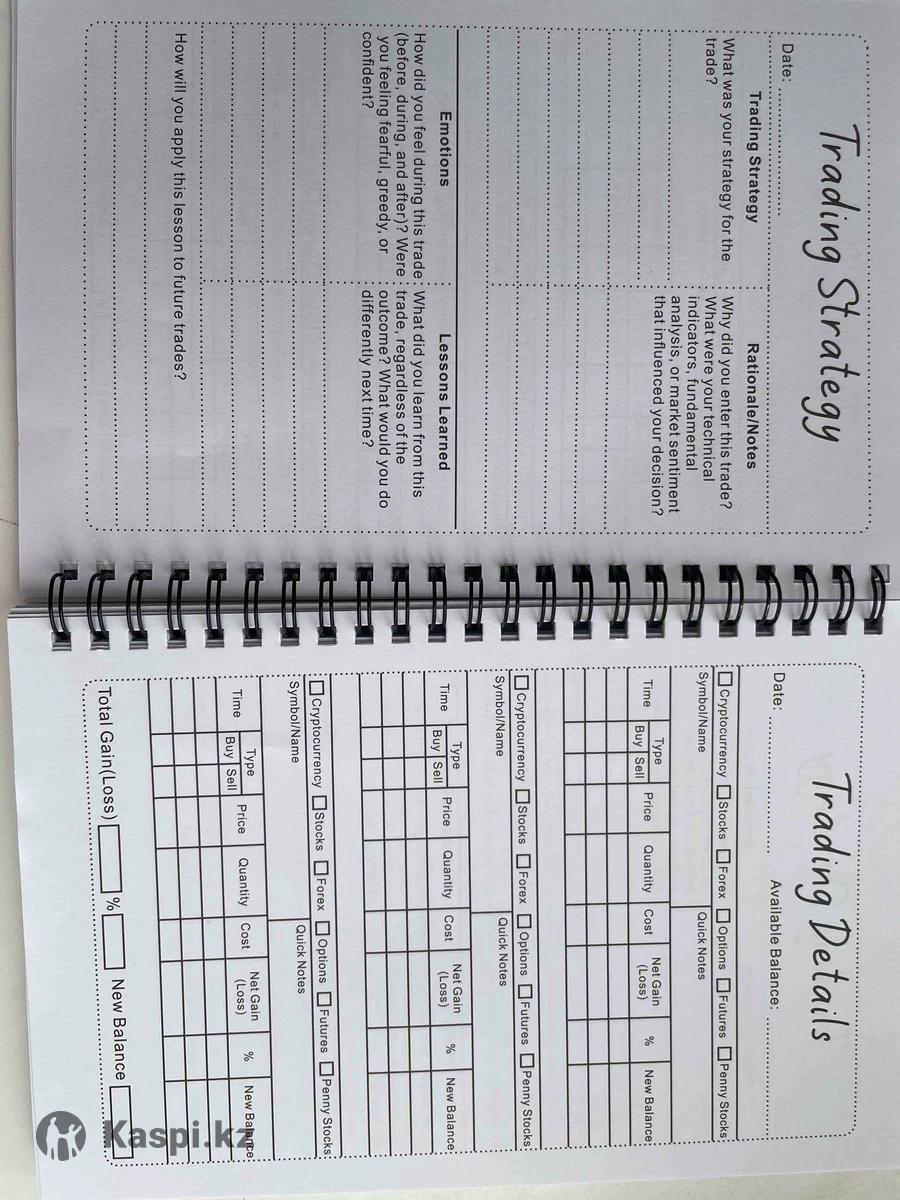 Trading Strategy
Date:
Trading Strategy
What was your strategy for the
trade?
Rationale/Notes
Why did you enter this trade?
What were your technical
indicators, fundamental
analysis, or market sentiment
that influenced your decision?
Emotions
How did you feel during this trade
(before, during, and after)? Were
you feeling fearful, greedy, or
confident?
Lessons Learned
What did you learn from this
trade, regardless of the
outcome? What would you do
differently next time?
How will you apply this lesson to future trades?
Trading Details
Date: Available Balance:
Cryptocurrency Stocks Forex Options Futures Penny Stocks
Symbol/Name Quick Notes
Time Type Price Quantity Cost Net Gain (Loss) % New Balance
Buy Sell
Cryptocurrency Stocks Forex Options Futures Penny Stocks
Symbol/Name Quick Notes
Time Type Price Quantity Cost Net Gain (Loss) % New Balance
Buy Sell
Cryptocurrency Stocks Forex Options Futures Penny Stocks
Symbol/Name Quick Notes
Time Type Price Quantity Cost Net Gain (Loss) % New Balance
Buy Sell
Total Gain(Loss) % New Balance
Kaspi.kz